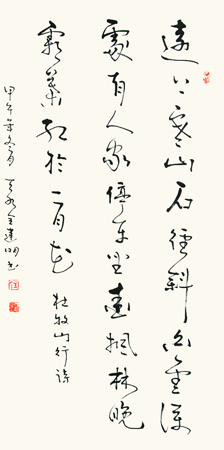 遠上寒山石徑斜白雲深
處有人家停車坐愛楓林晚
霜葉紅於二月花
杜牧山行詩
甲午年冬月建明書